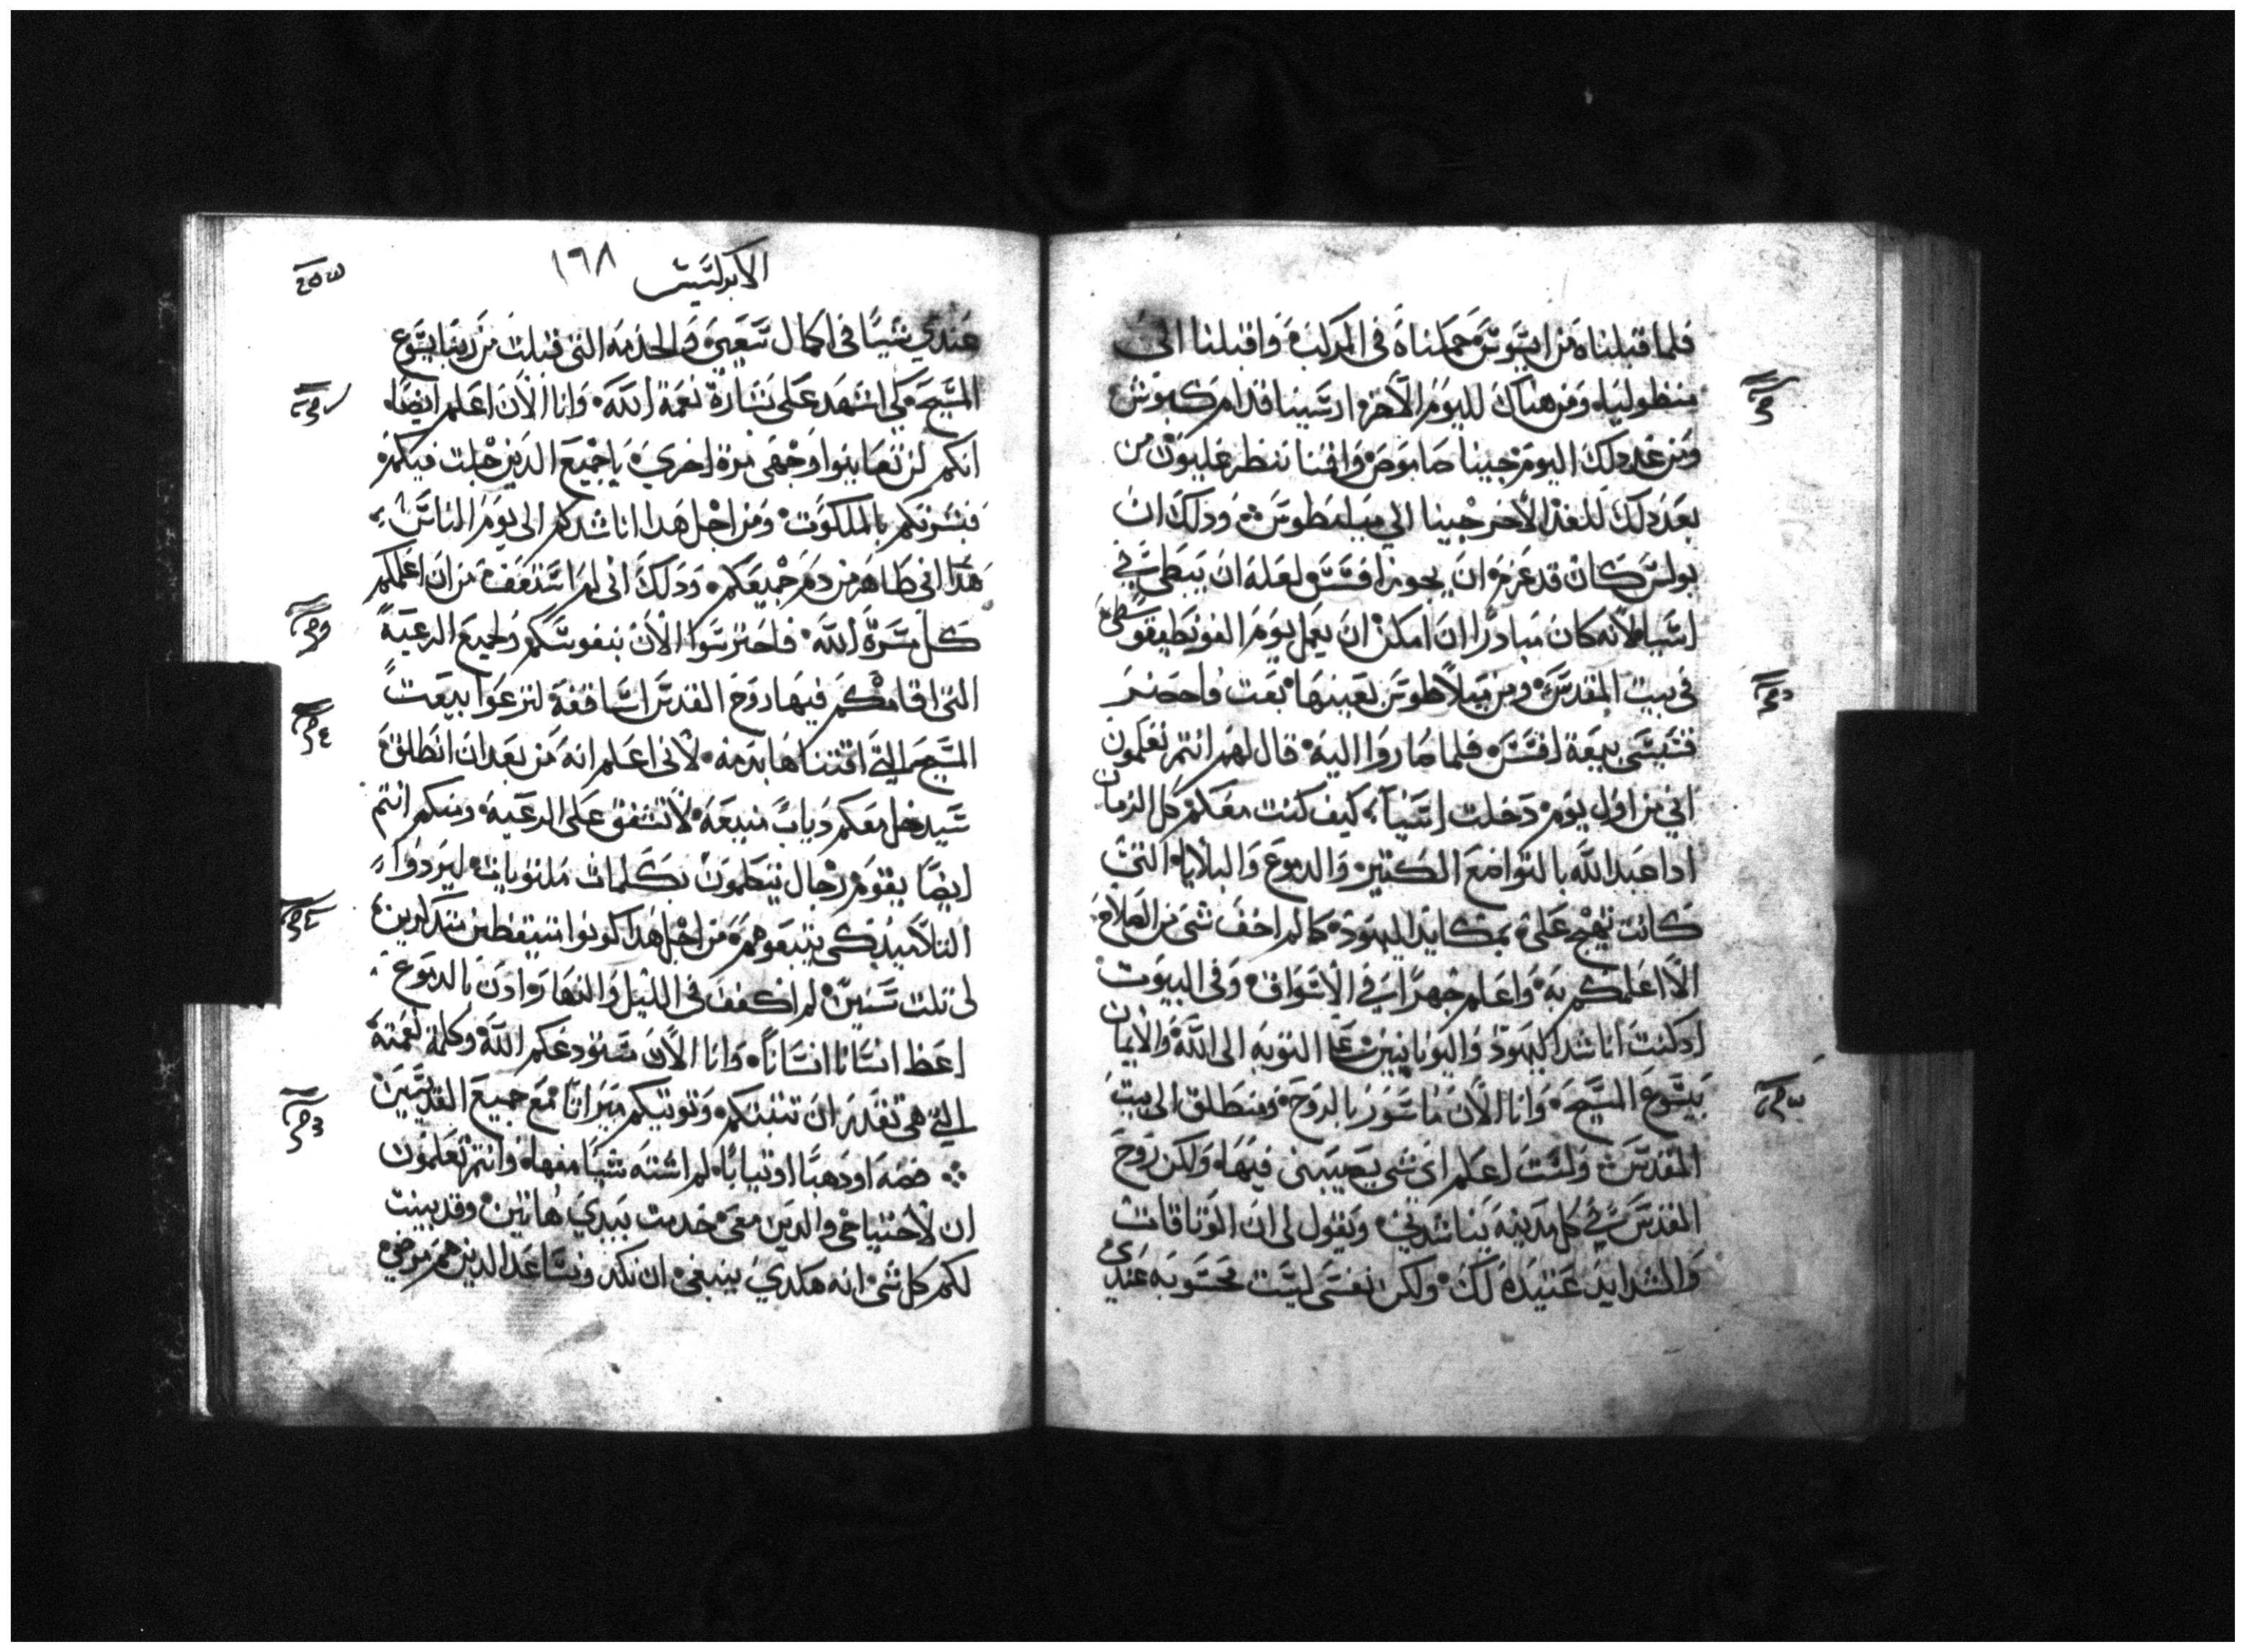 فلما قبلناه من اسوس حملناه في المركب واقبلنا الى
منطوليا ومن هناك لليوم الاخر ارسينا قدام كيوس
ومن غد ذلك اليوم جينا صاموص واقمنا
بعد ذلك للغد الاخر جينا الي ميليطوس وذلك ان
بولس كان قد عزم ان يجوز افسس لعله ان يبطي في
اسيا لانه كان مبادرا ان امكن ان يعمل يوم الفنطيقوسطي
في بيت المقدس ومن ميلاطوس بعينها بعت واحضر
قسيسي بيعة افسس فلما صاروا اليه قال لهم انتم تعلمون
اني من اول يوم دخلت اسيا كيف كنت معكم كل الزمان
اذا عبد الله بالتواضع الكتير والدموع والبلايا التي
كانت تهيج علي بمكايد اليهود كما لم اخف شي من الصلاح
الا اعلمكم به واعلم جهرا في الاسواق وفي البيوت
اذ كنت اناشد اليهود واليونانيين علي التوبه الى الله والايمان
بيسوع المسيح وانا الان ماسور بالروح ومنطلق الى بيت
المقدس ولست اعلم اي شي يصيبني فيها ولكن روح
القدس في كل مدينه يناشدني ويقول لي ان الوتاقات
والشدايد عتيده لك ولكن نفسي ليست محسوبه عندي
الابركسيس ١٦٨
عندي شيا في اكمال سعيي والخدمه التي قبلت من ربنا يسوع
المسيح كي اشهد على بشارة نعمة الله وانا الان اعلم ايضا
انكم لن تعاينوا وجهي مرة اخري يا جميع الذين جلت فيكم
فبشرتكم بالملكوت ومن اجل هذا اناشدكم الى يوم الناس
هذا اني طاهر من دم جميعكم وذلك اني لم استعف من ان اعلمكم
كل مسرة الله فاحترسوا الان بنفوسكم ولجميع الرعية
التي اقامكم فيها روح القدس اساقفة لترعوا بيعت
المسيح التي اقتناها بدمه لاني اعلم انه من بعد ان انطلق
سيدخل معكم دياب منيعه لا تشفق على الرعيه ومنكم انتم
ايضا يقوم رجال يتكلمون بكلمات ملتويات ليردوا
التلاميذ كي يتبعوهم من اجل هذا كونوا متيقظين متذكرين
لي تلت سنين لم اكفف في الليل والنهار اذ بالدموع
اعظ انسانا انسانا وانا الان مستودعكم الله وكلمة نعمته
التي هي تقدر ان تتبتكم وتوتيكم ميراتا مع جميع القديسين
فضه او ذهبا او تيابا لم اشته شيا منها وانتم تعلمون
ان لاحتياجي والذين معي خدمت يدي هاتين وقد بينت
لكم كل شي انه هكذي ينبغي ان نكد ونساعد الذين هم مرضي